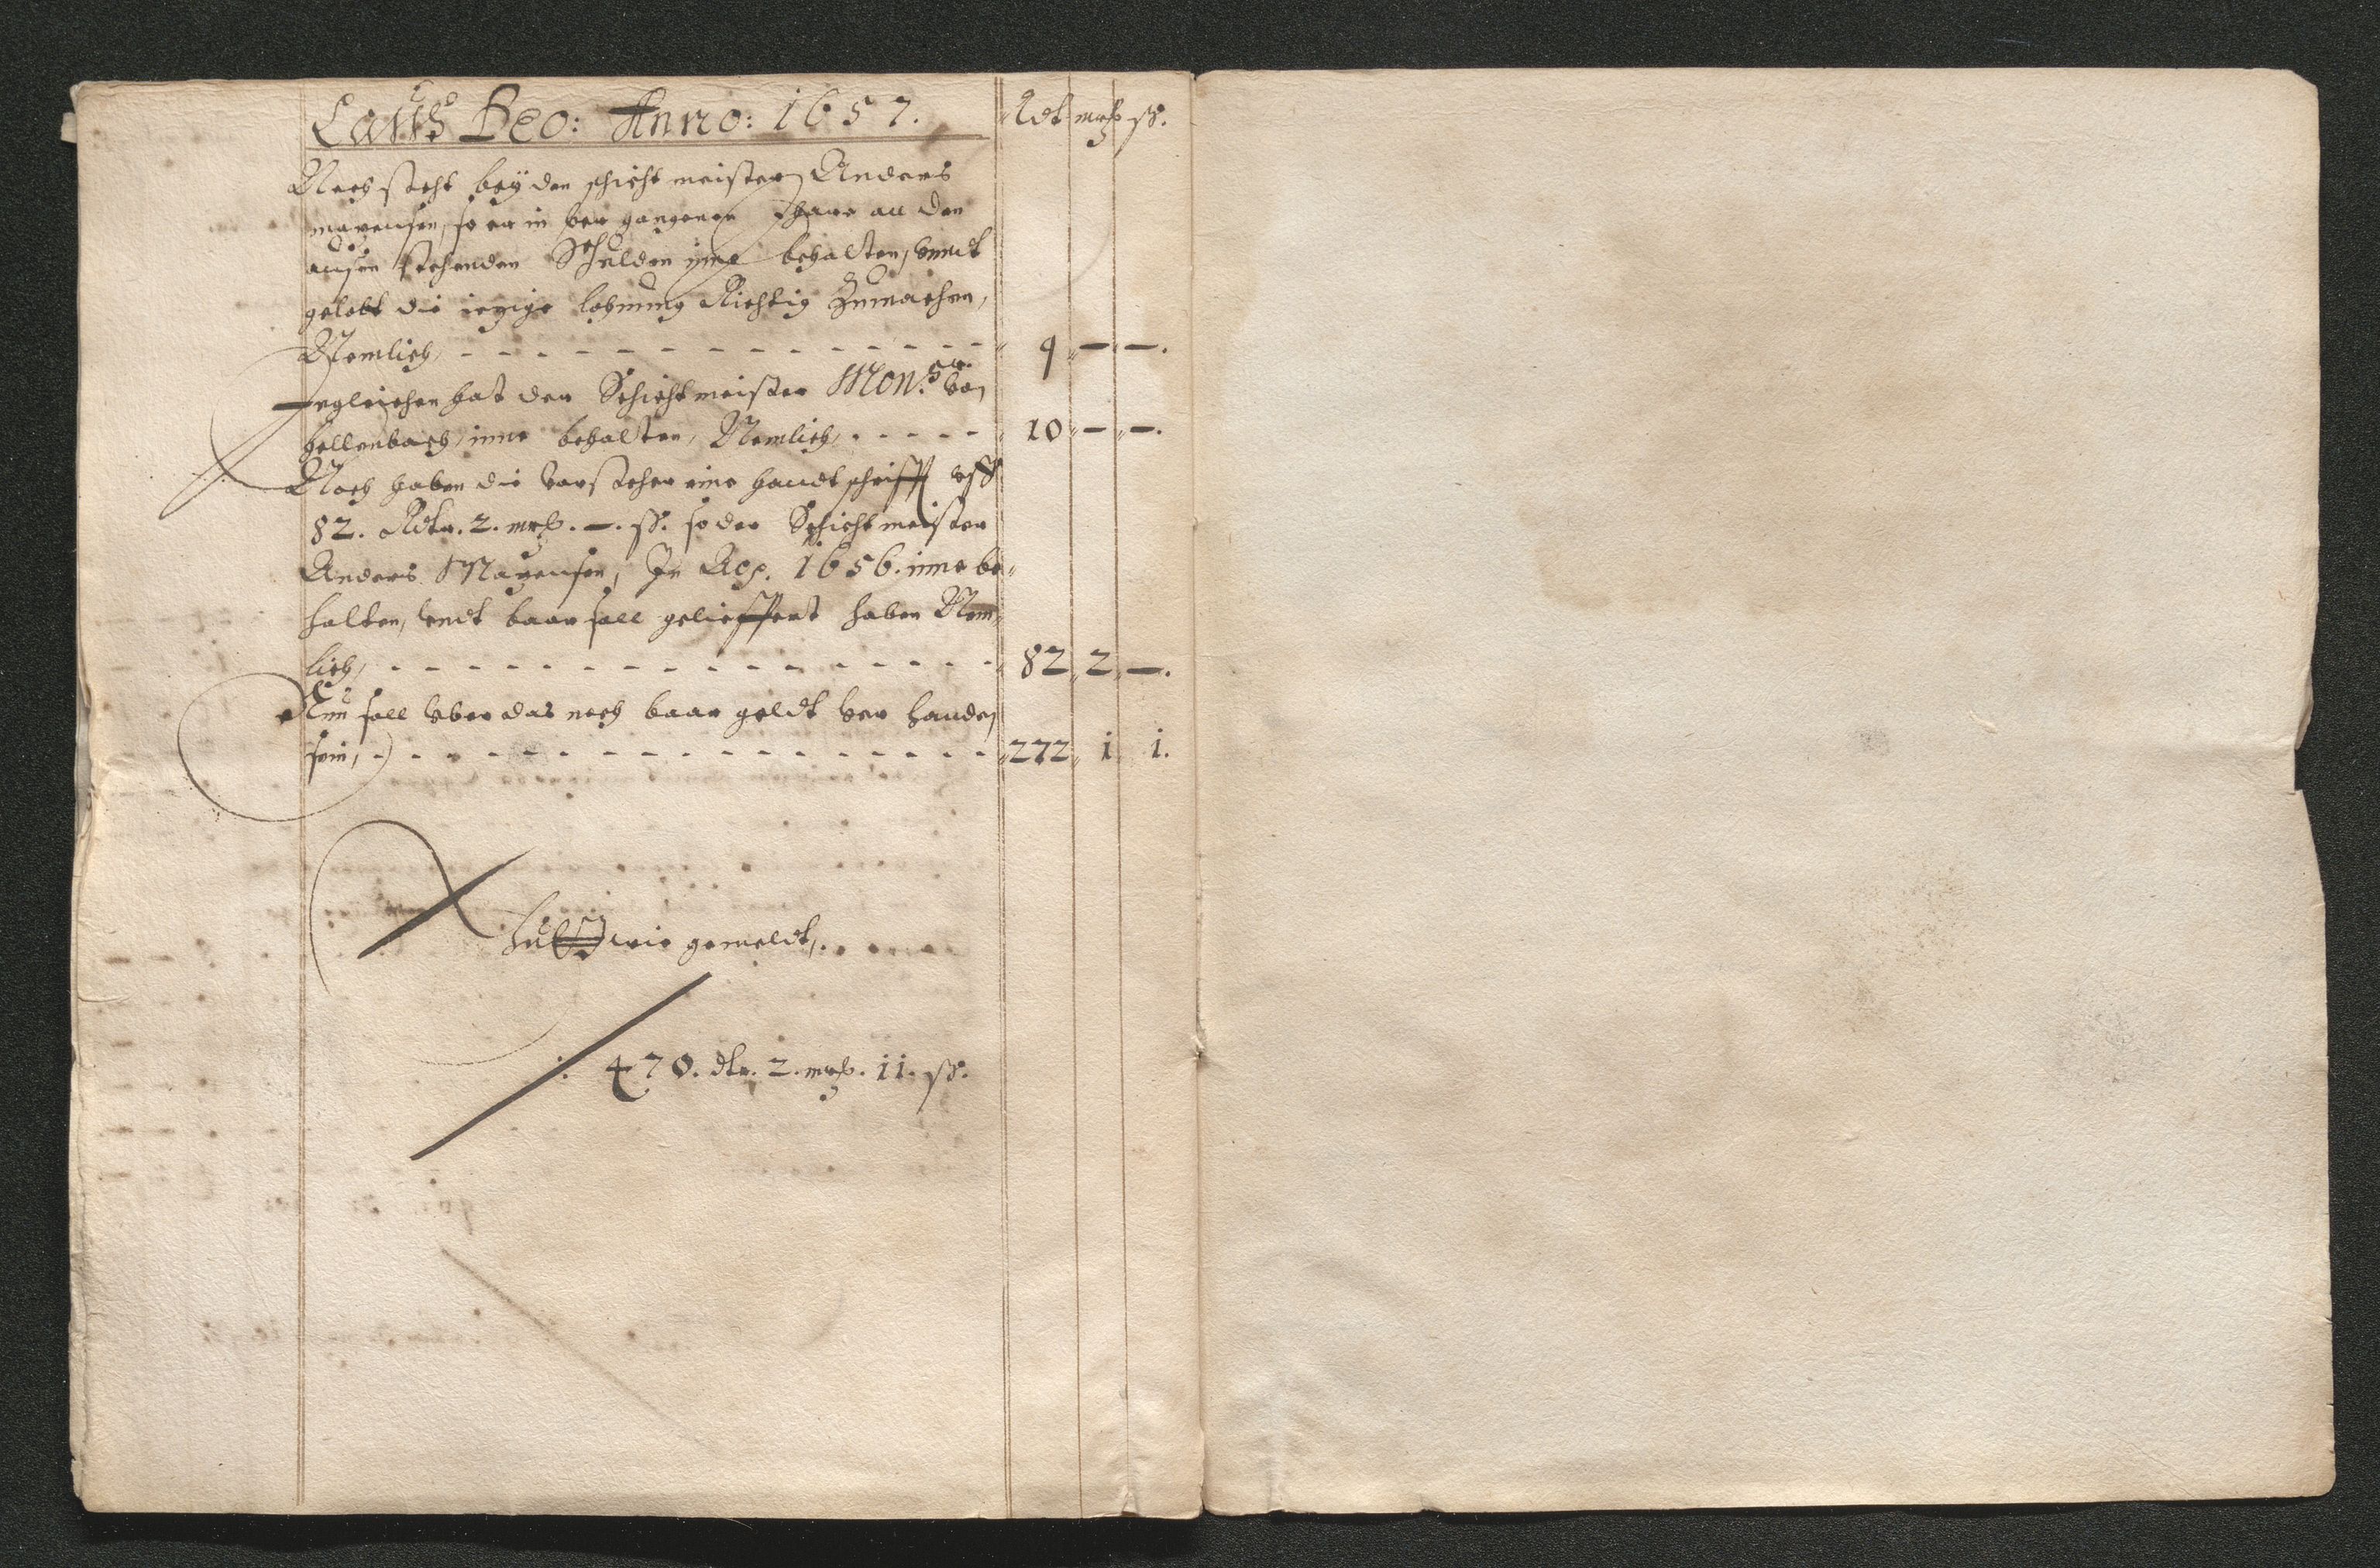 Lauß Deo: Anno: 1657. Rdt mrk ß.
Noch steht beÿ den schicht meister Anders
mavensen, so er in ver gangenen Jhare an den
ausen stehenden Schulden inne behalten, vndt
gelobt die iezige lohnung Richtig Zumachen,
Nemlich, - - - - - - - - - - - - - - 9 — —.
Desgleichen hat der Schichtmeister Mon.sr von
hellenbach, inne behalten, Nemlich, - - - - - 10 — —.
Noch haben die vorsteher eine handt schrifft vff
82. Rdtr. 2. mrk. —. ß. so der Schichtmeister
Anders Mavensen, In Aô. 1656. inne be-
halten, vndt baar soll gelieffert haben Nem-
lich, - - - - - - - - - - - - - - - - 82 2 —.
Nun soll vber das noch baar geldt vor handen
sein, - - - - - - - - - - - - - - - - 272 i i.
wie gemeldt, . . . . . .
: 470. dtr. 2. mrk. ii. ß.